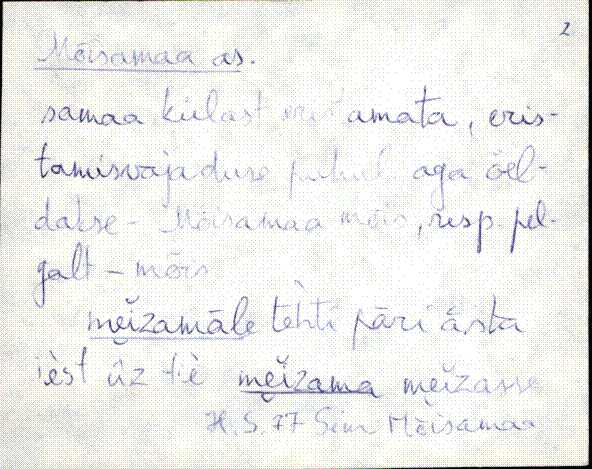 2
Mõisamaa as.
samaa külast eristamata, eris-
tamisvajaduse puhul aga öel-
dakse – Mõisamaa mõis, resp. pel-
galt – mõis
mẹizamāle tehti pāri āsta
iest ūz tiè mẹizama mẹizasse
H. S. 77 Sim Mõisamaa